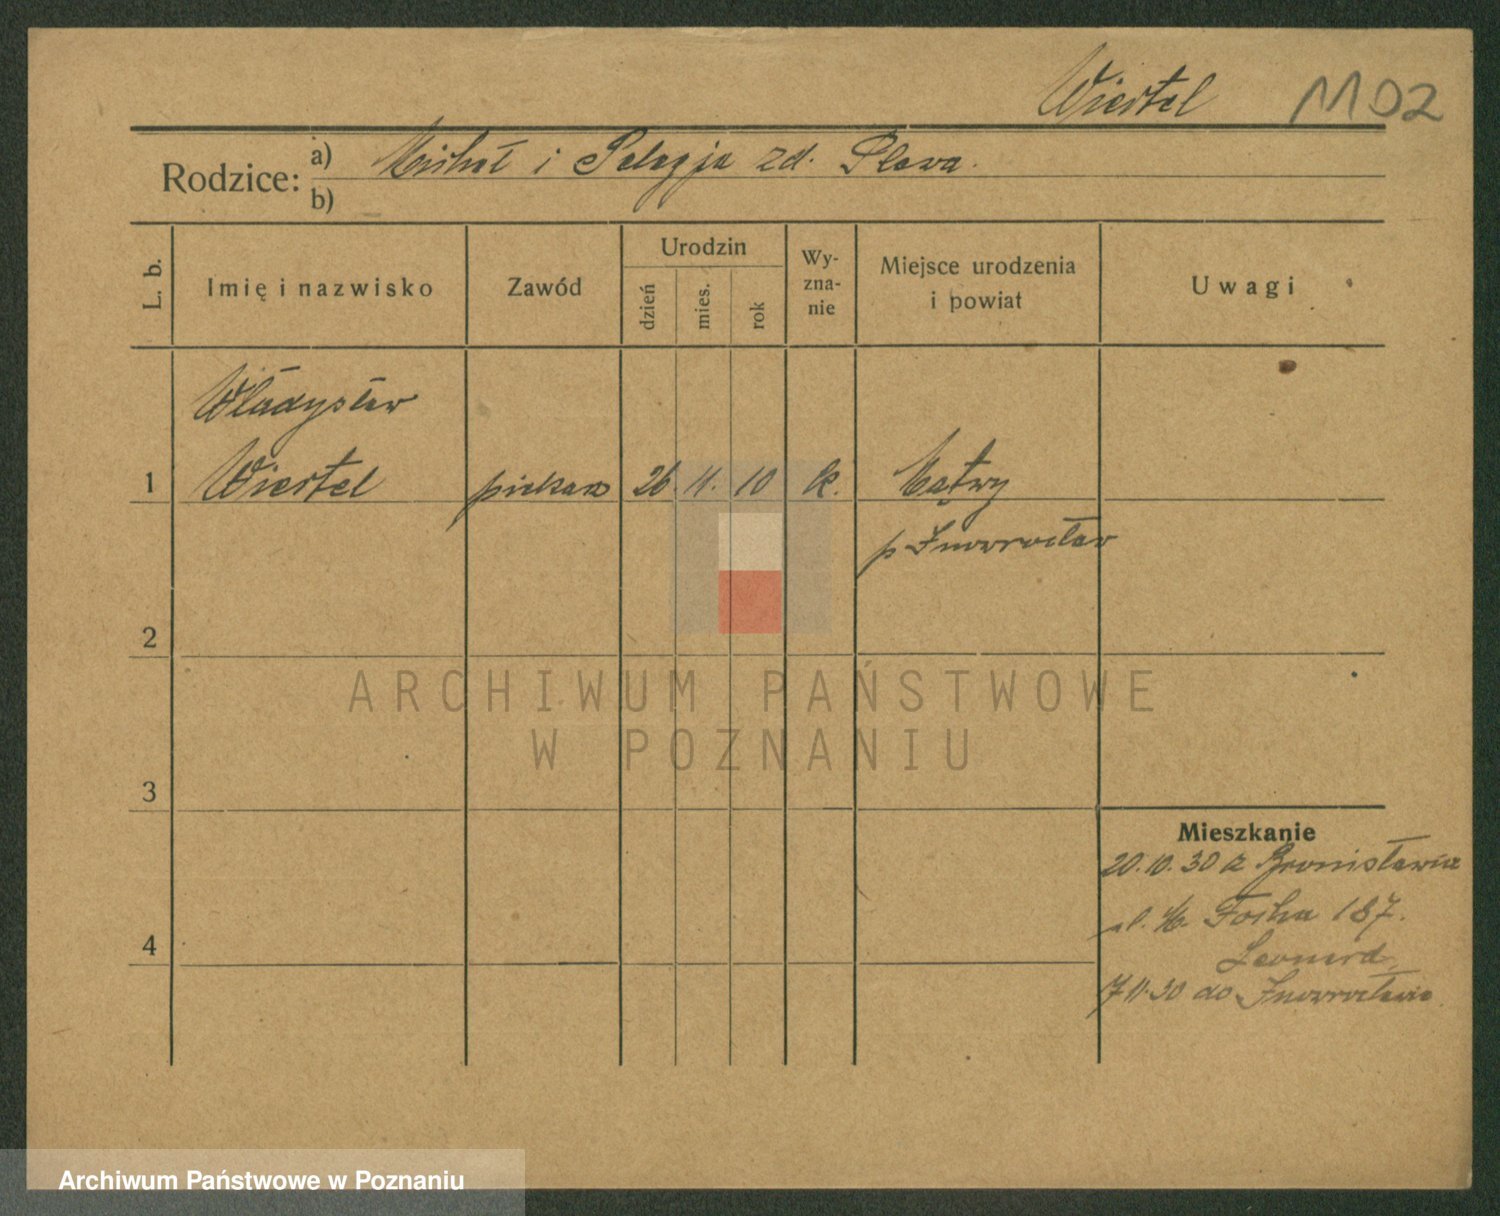 Wiertel 1102
Rodzice:
a) Michał i Pelagja zd. Plewa.
b)
L. b.
Imię i nazwisko
Zawód
Urodzin
dzień
mies.
rok
Wy-
zna-
nie
Miejsce urodzenia
i powiat
Uwagi
Władysław
1 Wiertel piekarz 26 11. 10 k. Mątwy
p Inowrocław
2
3
4
Mieszkanie
20.10.30 z Bronisławia
ul. M. Focha 187.
Leonard
7 11.30 do Inowrocławia
ARCHIWUM PAŃSTWOWE
W POZNANIU
Archiwum Państwowe w Poznaniu